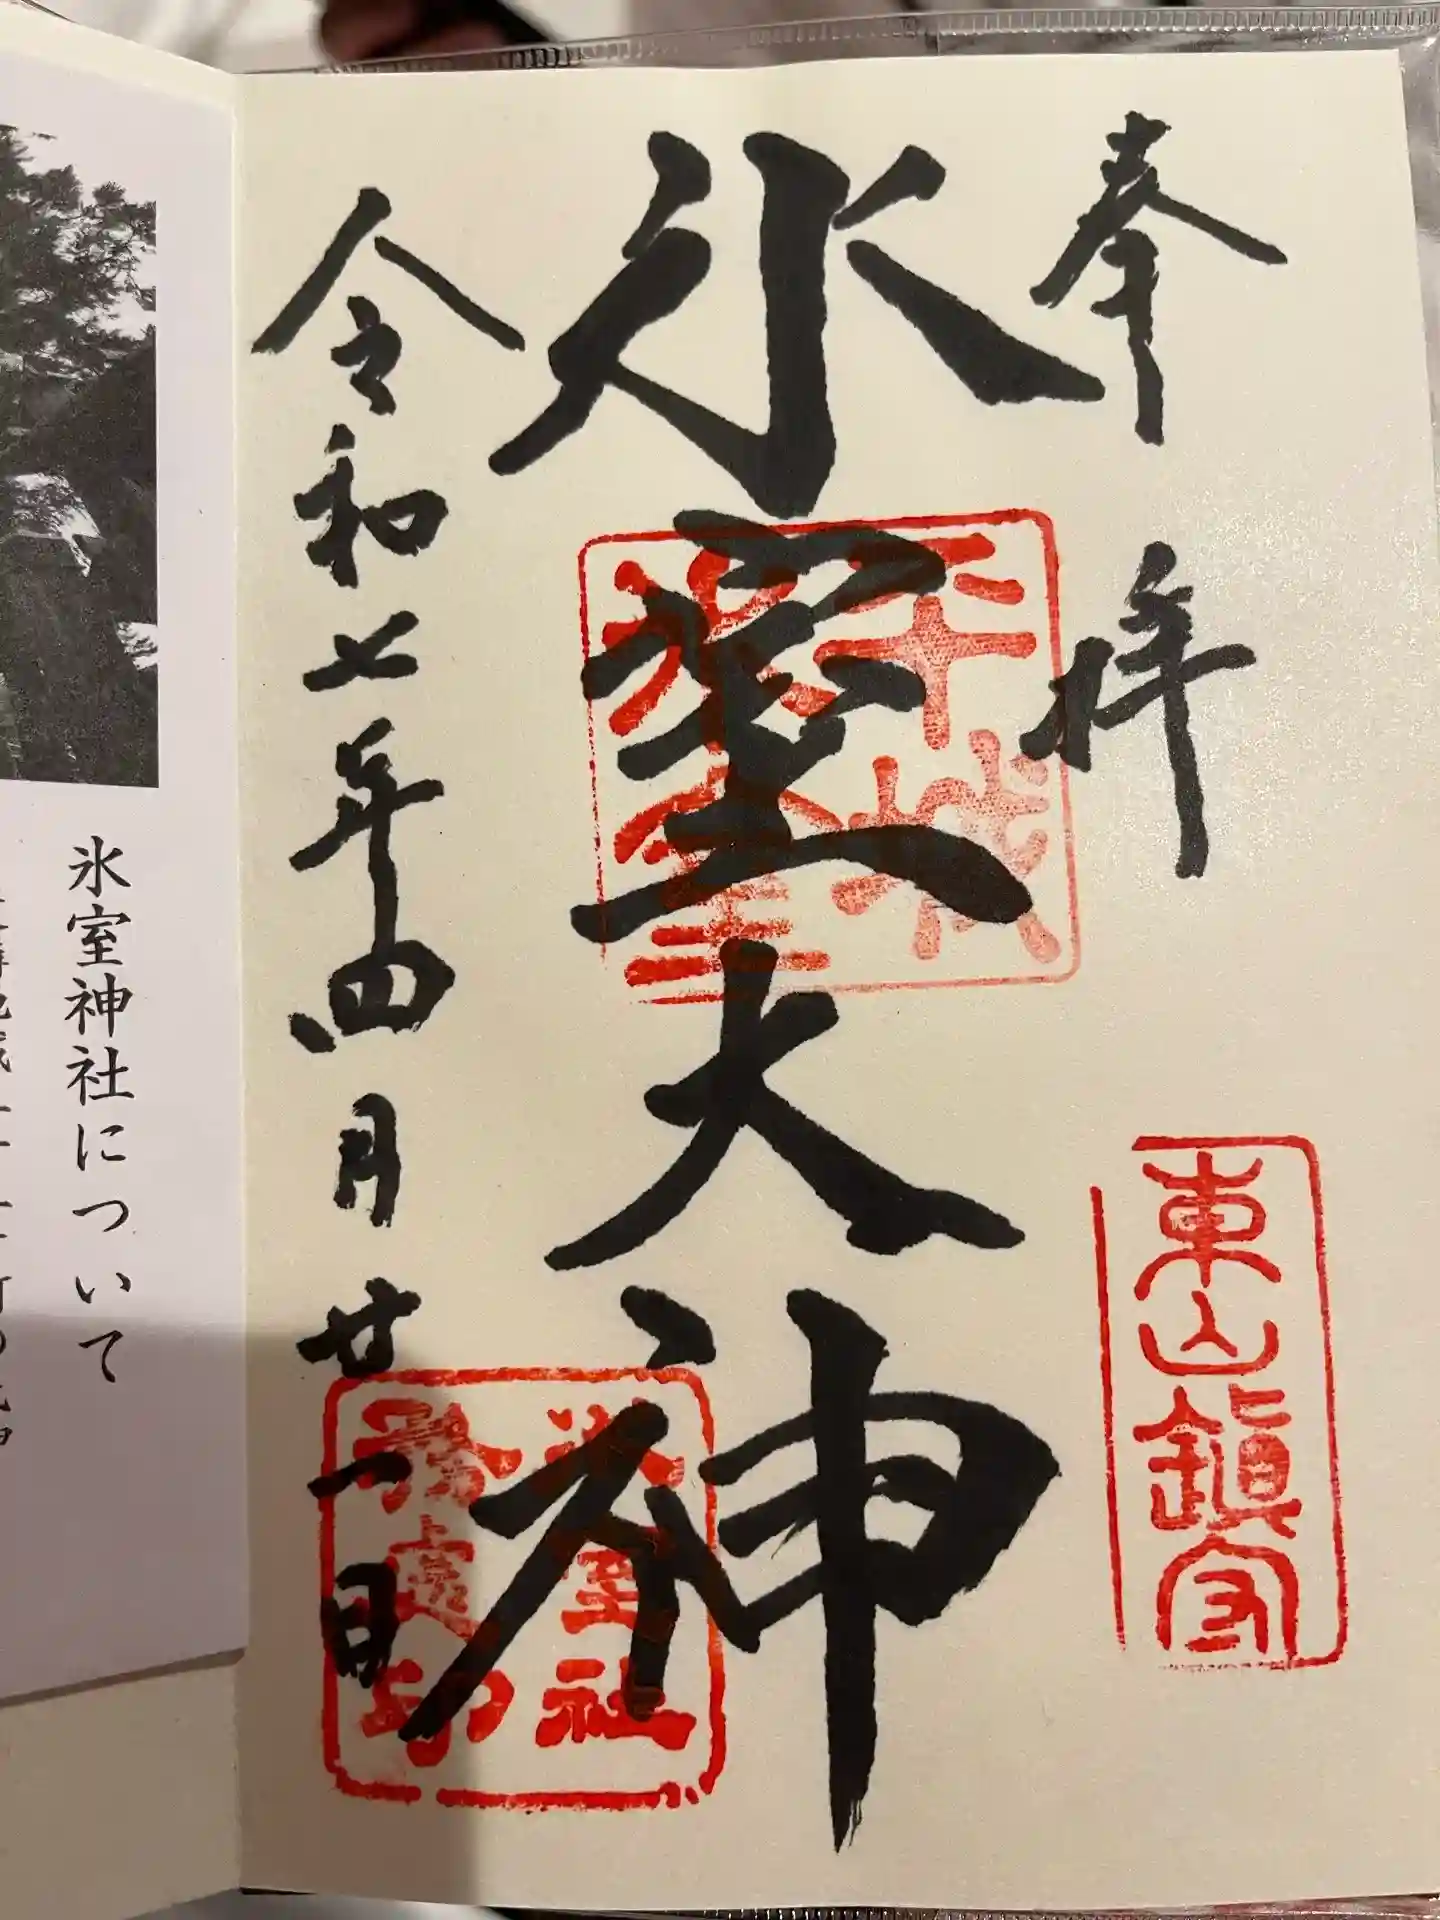 奉拝
東山鎮守
氷室大神
千歳
氷室
氷室社
令和七年四月廿一日
氷室神社について